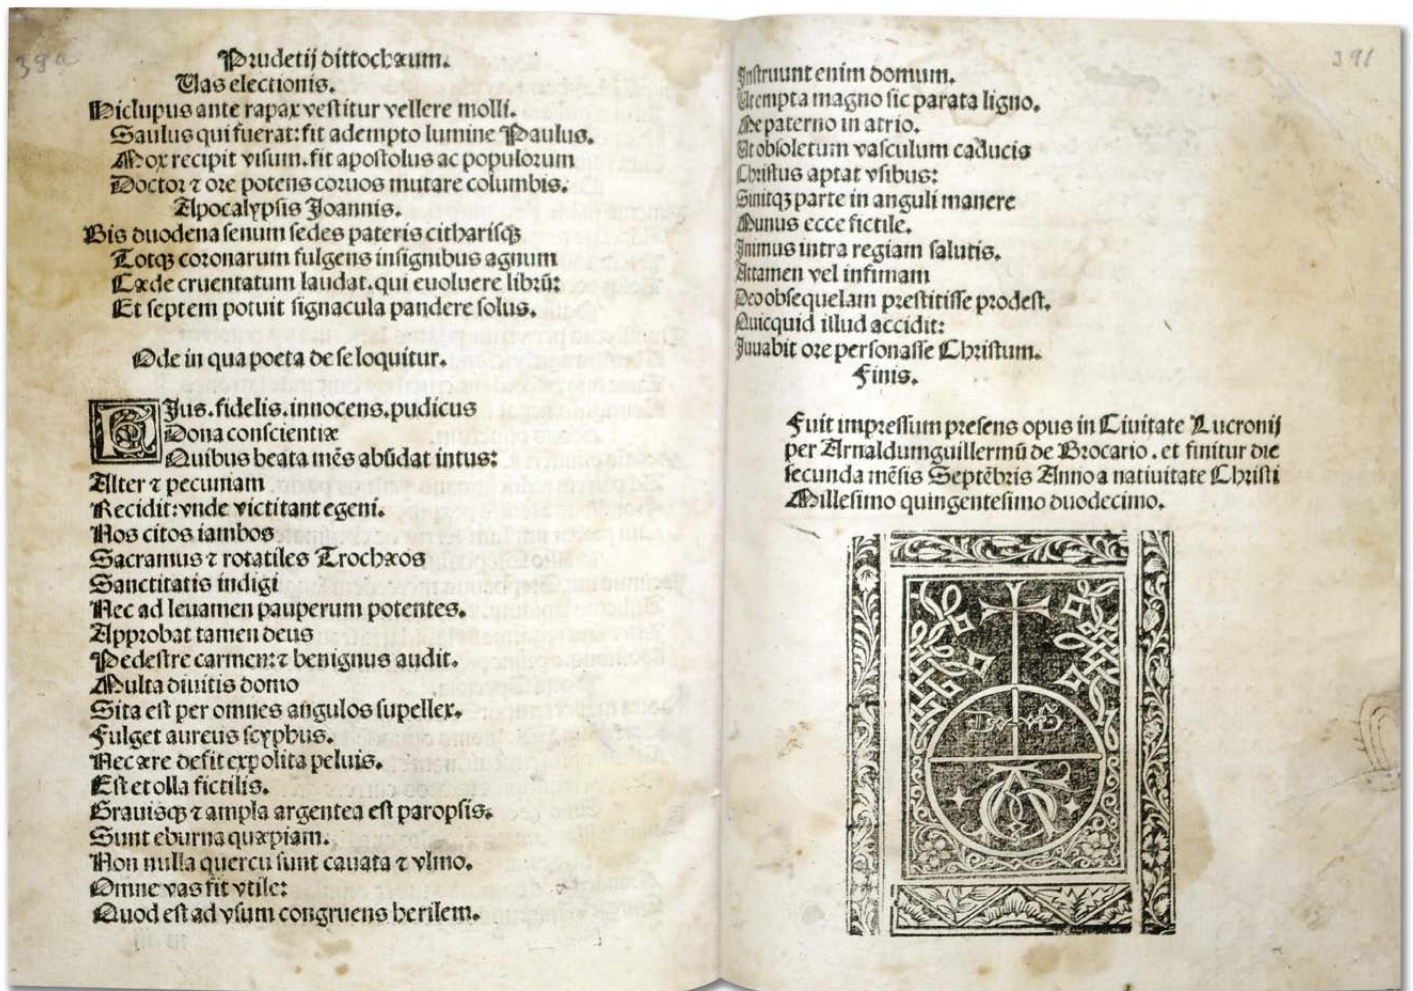 389
Prudẽtij dittochæum.
Uas electionis.
Hiclupus ante rapax vestitur vellere molli.
Saulus qui fuerat: fit adempto lumine Paulus.
Mox recipit visum. fit apostolus ac populorum
Doctor ⁊ ore potens coruos mutare columbis.
Apocalypsis Joannis.
Bis duodena senum sedes pateris citharisqꝫ
Totqꝫ coronarum fulgens insignibus agnum
Cæde cruentatum laudat. qui euoluere librũ:
Et septem potuit signacula pandere solus.
Ode in qua poeta de se loquitur.
PIus. fidelis. innocens. pudicus
Dona conscientiæ
Quibus beata mẽs abũdat intus:
Alter ⁊ pecuniam
Recidit: vnde victitant egeni.
Nos citos iambos
Sacramus ⁊ rotatiles Trochæos
Sanctitatis indigi
Nec ad leuamen pauperum potentes.
Approbat tamen deus
Pedestre carmen: ⁊ benignus audit.
Multa diuitis domo
Sita est per omnes angulos supellex.
Fulget aureus scyphus.
Nec ære defit expolita peluis.
Est et olla fictilis.
Grauisqꝫ ⁊ ampla argentea est paropsis.
Sunt eburna quæpiam.
Non nulla quercu sunt cauata ⁊ vlmo.
Omne vas fit vtile:
Quod est ad vsum congruens herilem.
391
Instruunt enim domum.
Ut empta magno sic parata ligno.
Me paterno in atrio.
Ut obsoletum vasculum caducis
Christus aptat vsibus:
Sinitqꝫ parte in anguli manere
Munus ecce fictile.
Inimus intra regiam salutis.
Attamen vel infimam
Deo obsequelam prestitisse prodest.
Quicquid illud accidit:
Juuabit ore personasse Christum.
Finis.
Fuit impressum presens opus in Ciuitate Lucronij
per Arnaldumguillermũ de Brocario. et finitur die
secunda mẽsis Septẽbris Anno a natiuitate Christi
Millesimo quingentesimo duodecimo.